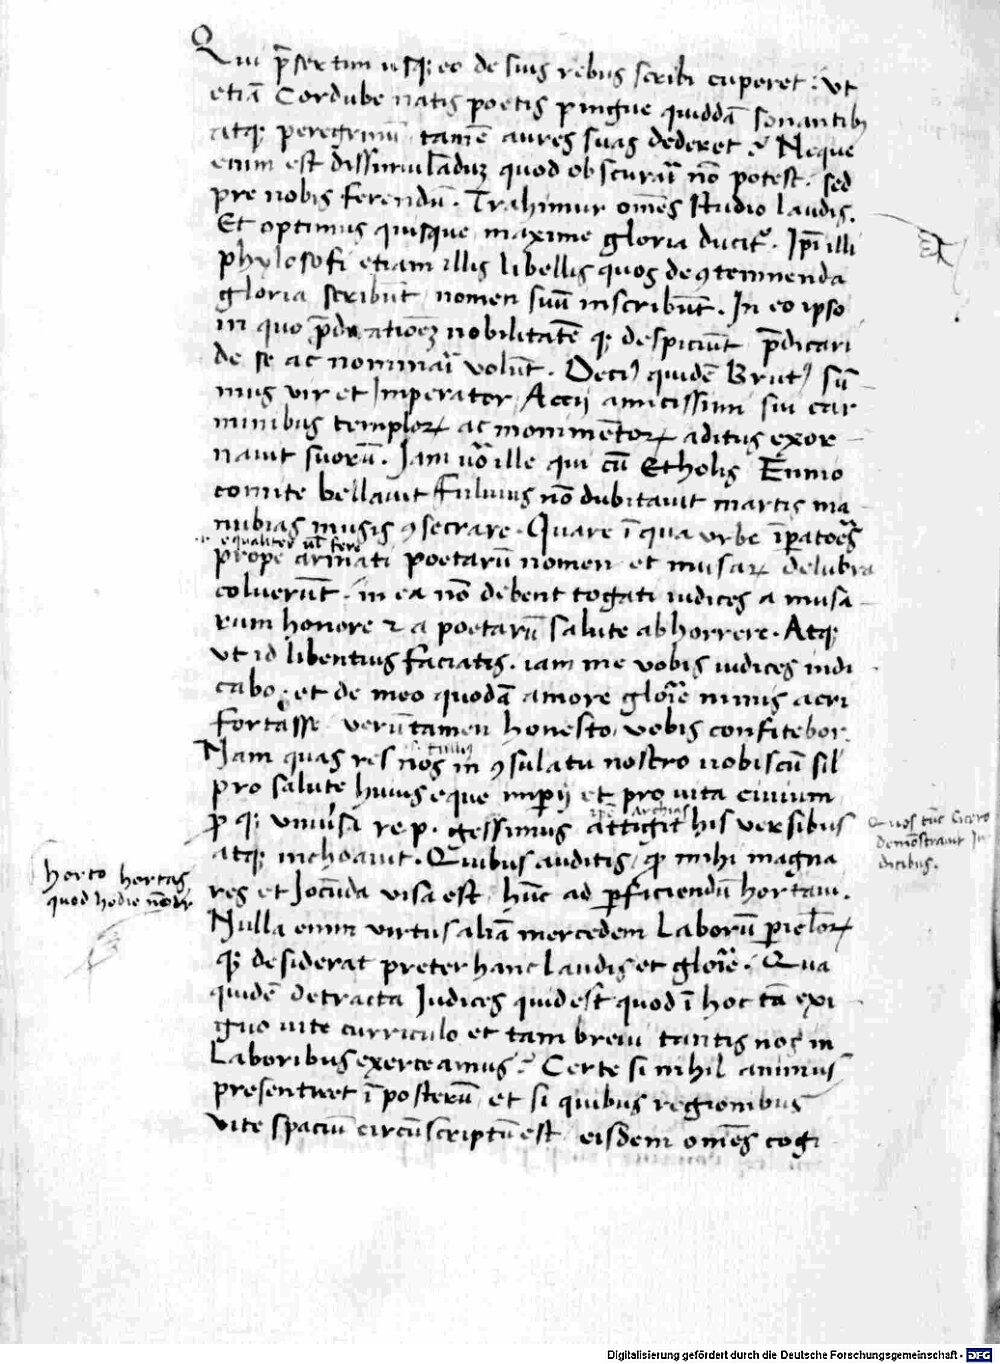 Qui p̄sertim usq; eo de suis rebus scribi cuperet: Ut
etiā Cordube natis poetis pingue quiddā sonantibꝫ
atqꝫ peregrinū tamē aures suas dederet? Neque
enim est dissimulādūꝫ quod obscurari nō potest. sed
pre nobis ferendū. Trahimur omēs studio laudis.
Et optimus quisque maxime gloria ducit᷑. Ip̄i illi
phylosofi etiam illis libellis quos de ꝯtemnenda
gloria scribūt nomen suū inscribūt. In eo ipso
in quo p̄dicatioēꝫ nobilitatē qꝫ despiciūt p̄dicari
de se ac nominari volūt. Deciꝰ quidē Brutꝰ sū
mus vir et Imperator Accij amicissimi sui car
minibus templorꝝ ac monimētorꝝ aditus exor
navit suorū. Jam v̄o ille qui cū Etholis Ennio
comite bellavit Fulvius nō dubitavit martis ma
nubias musis ꝯsecrare. Quare ī qua urbe īperatoēs
equaliter ul̄ fere
prope armati poetarū nomen et musarꝝ delubra
coluerūt. in ea nō debent togati iudices a musa
rum honore ⁊ a poetarū salute abhorrere. Atqꝫ
ut id libentius faciatis. iam me vobis iudices indi
cabo. et de meo quodā amore glorīe nimis acri
fortasse verūtamen honesto vobis confitebor.
Nam quas res nos in ꝯsulatu nostro nobiscū sil̄
pro salute huius eque imperij et pro vita civium
ꝓ qꝫ univ̄sa re p. gessimus attigit his versibus
Archias
atqꝫ inchoavit. Quibus auditis, qꝫ mihi magna
res et Jocūda visa est, hūc ad ꝑficiendū hortavi.
Nulla enim virtus aliā mercedem Laborū pericl̄orꝝ
qꝫ desiderat preter hanc Laudis et glorīe. Qua
quidē detracta Judices quid est quod ī hoc tā exi
guo vite curriculo et tam brevi tantis nos in
Laboribus exerceamus? Certe si nihil animus
presentiret ī posterū et si quibus regionibus
vite spaciū circūscriptū est, eisdem omēs cogi
Quos tūc Cicero
demōstravit Ju
dicibus.
horto hortas
quod hodie
Digitalisierung gefördert durch die Deutsche Forschungsgemeinschaft - DFG